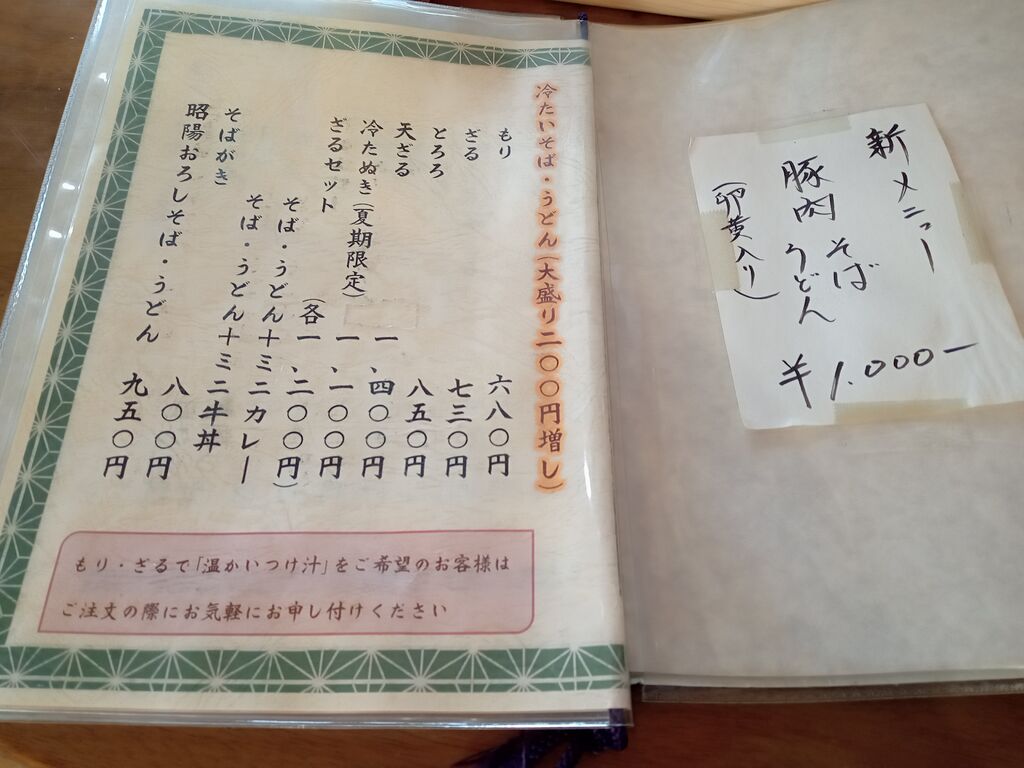 新メニュー
豚肉 そば
うどん
（卵黄入り）
¥1,000-
冷たいそば・うどん（大盛り二〇〇円増し）
もり 六八〇円
ざる 七三〇円
とろろ 八五〇円
天ざる 一、四〇〇円
冷たぬき（夏期限定） 一、一〇〇円
ざるセット （各一、二〇〇円）
そば・うどん＋ミニカレー
そば・うどん＋ミニ牛丼
そばがき 八〇〇円
昭陽おろしそば・うどん 九五〇円
もり・ざるで「温かいつけ汁」をご希望のお客様は
ご注文の際にお気軽にお申し付けください